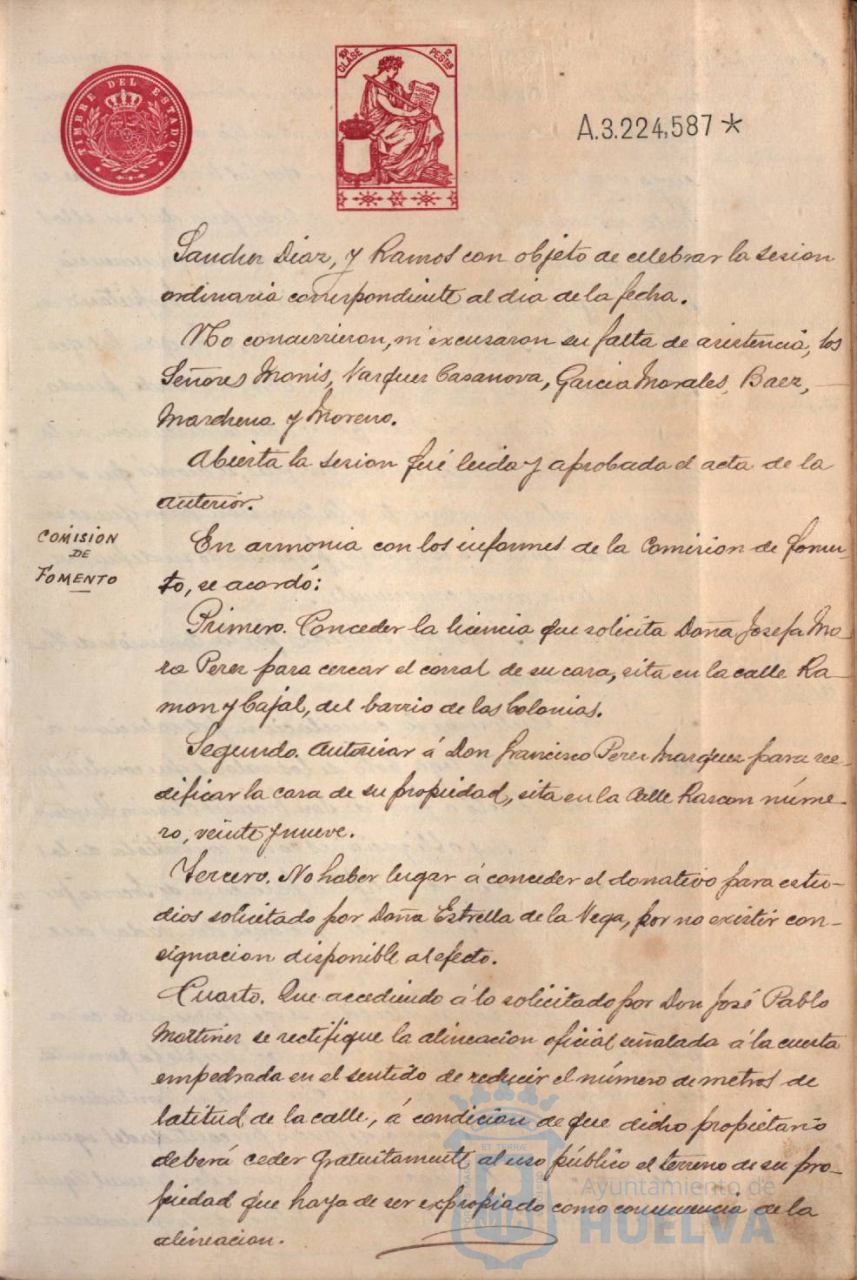 TIMBRE DEL ESTADO
10ª CLASE
2 PESTAS
A.3.224,587*
Sanchez Diaz, y Ramos con objeto de celebrar la sesion
ordinaria correspondiente al dia de la fecha.
No concurrieron, ni excusaron su falta de asistencia, los
Señores Monis, Vazquez Casanova, Garcia Morales, Baez,
Marchena y Moreno.
Abierta la sesion fué leida y aprobada el acta de la
anterior.
COMISION
DE
FOMENTO
En armonia con los informes de la Comision de fomen-
to, se acordó:
Primero. Conceder la licencia que solicita Doña Josefa Mo-
ra Perez para cercar el corral de su casa, sita en la calle Ra-
mon y Cajal, del barrio de las Colonias.
Segundo. Autorizar á Don Francisco Perez Marquez para ree-
dificar la casa de su propiedad, sita en la Calle Rascon núme-
ro, veinte y nueve.
Tercero. No haber lugar á conceder el donativo para estu-
dios solicitado por Doña Estrella de la Vega, por no existir con-
signacion disponible al efecto.
Cuarto. Que accediendo á lo solicitado por Don José Pablo
Martinez se rectifique la alineacion oficial señalada á la cuesta
empedrada en el sentido de reducir el número de metros de
latitud de la calle, á condicion de que dicho propietario
deberá ceder gratuitamente al uso público el terreno de su pro-
piedad que haya de ser expropiado como consecuencia de la
alineacion.
Ayuntamiento de
HUELVA